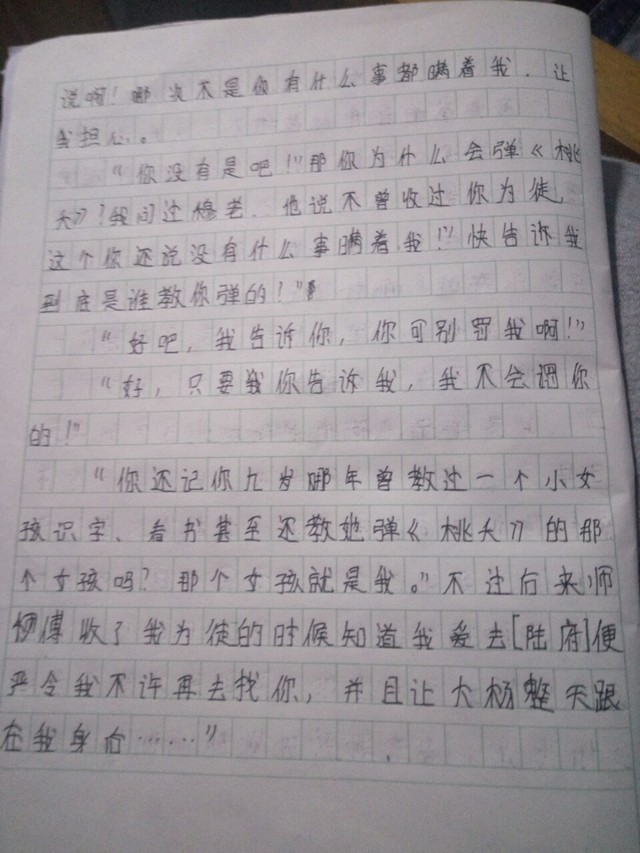 说啊！哪次不是你有什么事都瞒着我，让
我担心。
“你没有是吧！”那你为什么会弹《桃
夭》？我问过穆老，他说不曾收过你为徒，
这个你还说没有什么事瞒着我！”快告诉我
到底是谁教你弹的！”
“好吧，我告诉你，你可别罚我啊！”
“好，只要我你告诉我，我不会调你
的！”
“你还记你九岁哪年曾教过一个小女
孩识字、看书甚至还教她弹《桃夭》的那
个女孩吗？那个女孩就是我。”不过后来师
傅收了我为徒的时候知道我爱去[陆府]便
严令我不许再去找你，并且让大杨整天跟
在我身后……”